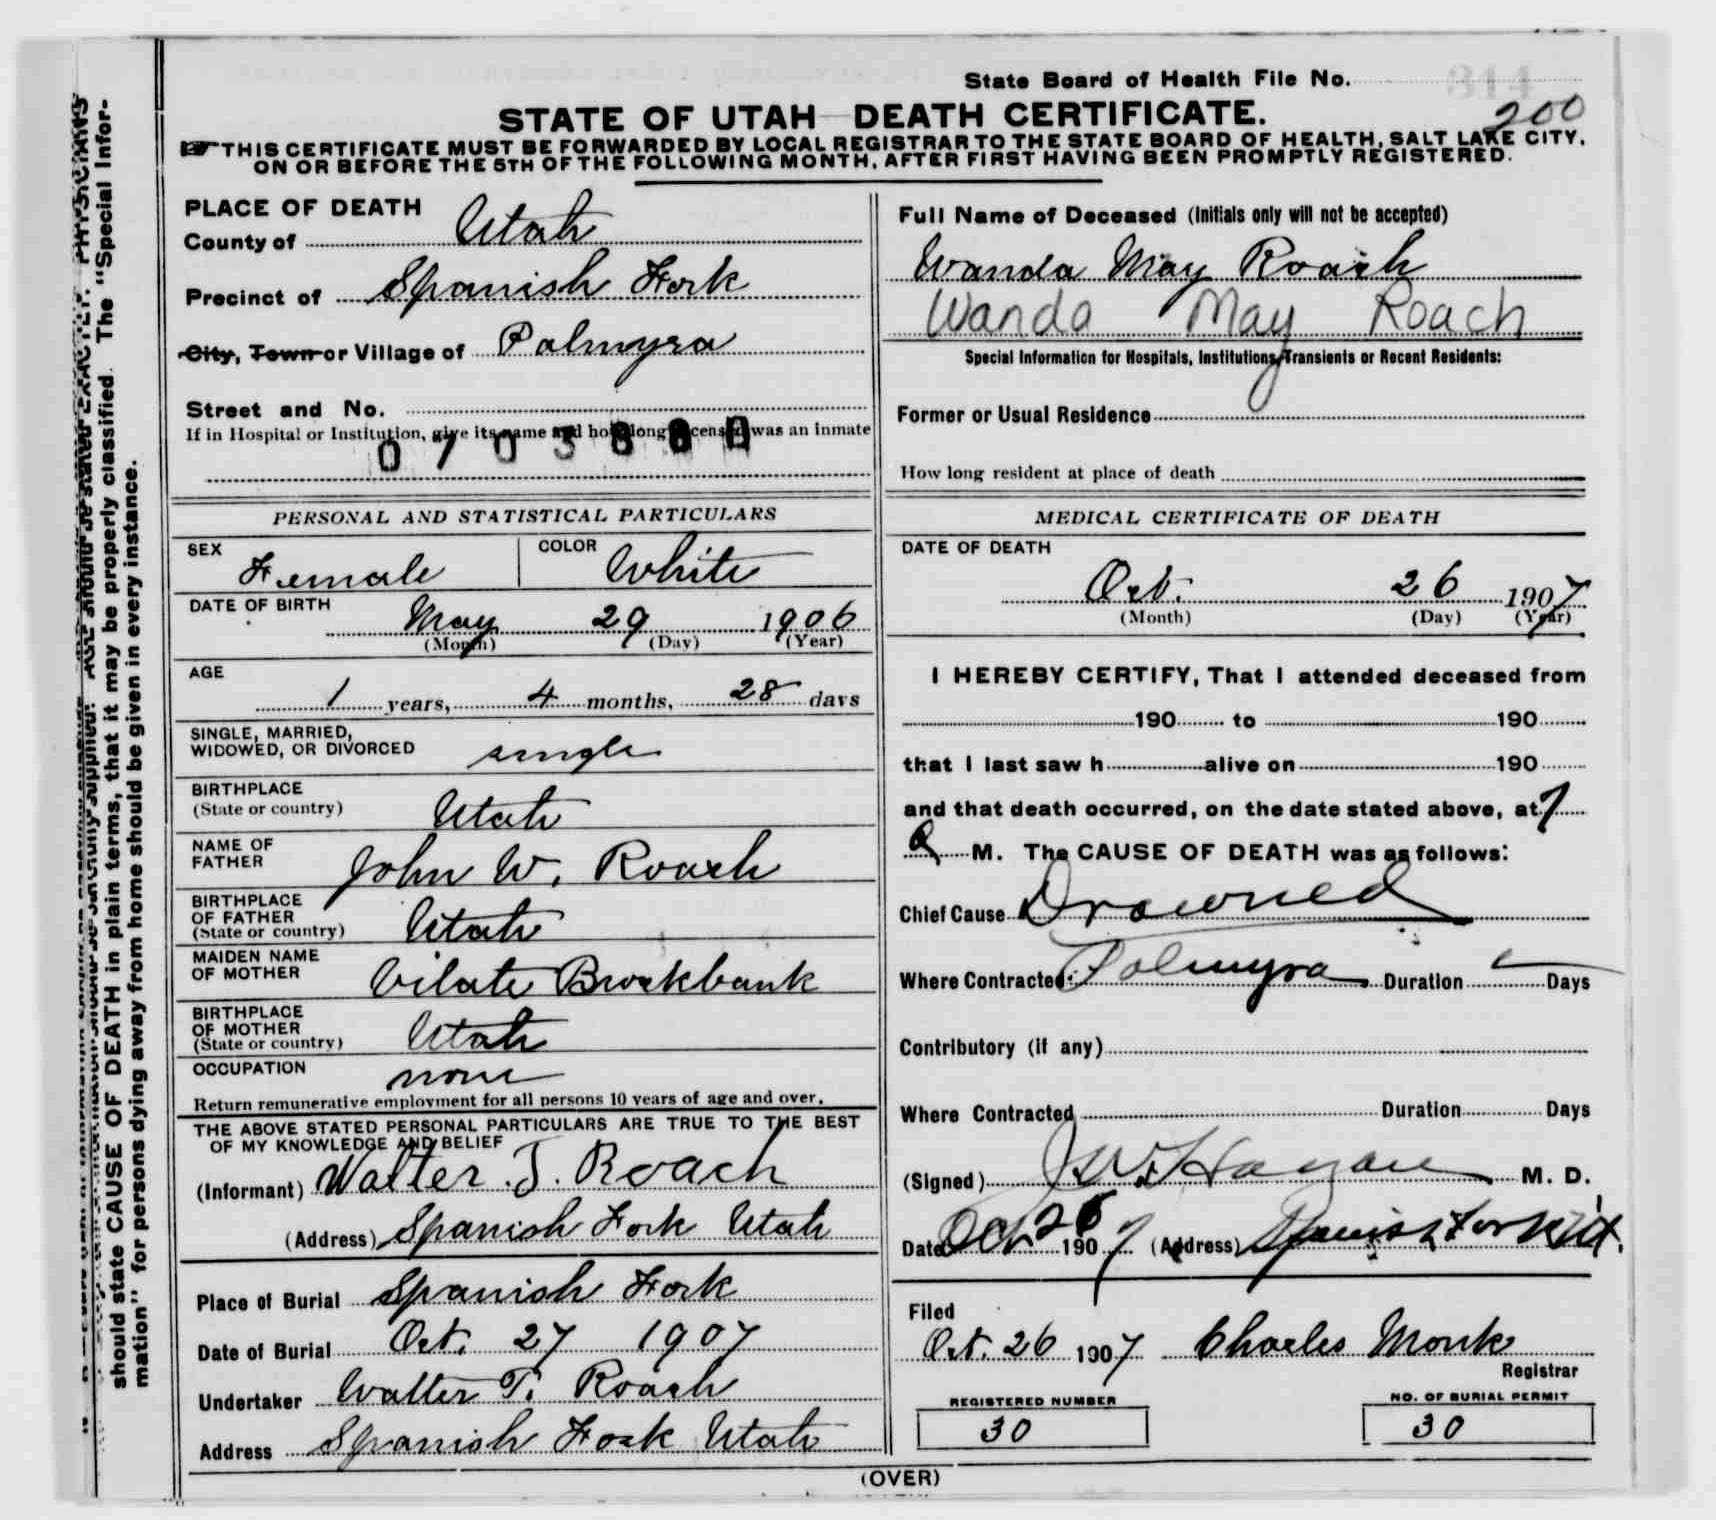 State Board of Health File No. 314
200
STATE OF UTAH DEATH CERTIFICATE.
THIS CERTIFICATE MUST BE FORWARDED BY LOCAL REGISTRAR TO THE STATE BOARD OF HEALTH, SALT LAKE CITY,
ON OR BEFORE THE 5TH OF THE FOLLOWING MONTH, AFTER FIRST HAVING BEEN PROMPTLY REGISTERED.
PLACE OF DEATH
County of Utah
Precinct of Spanish Fork
City, Town or Village of Palmyra
Street and No.
If in Hospital or Institution, give its name and how long deceased was an inmate
PERSONAL AND STATISTICAL PARTICULARS
SEX Female COLOR White
DATE OF BIRTH May 29 1906
(Month) (Day) (Year)
AGE
1 years, 4 months, 28 days
SINGLE, MARRIED,
WIDOWED, OR DIVORCED single
BIRTHPLACE
(State or country) Utah
NAME OF
FATHER John W. Roach
BIRTHPLACE
OF FATHER
(State or country) Utah
MAIDEN NAME
OF MOTHER Vilate Brockbank
BIRTHPLACE
OF MOTHER
(State or country) Utah
OCCUPATION none
Return remunerative employment for all persons 10 years of age and over.
THE ABOVE STATED PERSONAL PARTICULARS ARE TRUE TO THE BEST
OF MY KNOWLEDGE AND BELIEF
(Informant) Walter T. Roach
(Address) Spanish Fork Utah
Place of Burial Spanish Fork
Date of Burial Oct. 27 1907
Undertaker Walter T. Roach
Address Spanish Fork Utah
Full Name of Deceased (Initials only will not be accepted)
Wanda May Roach
Wanda May Roach
Special Information for Hospitals, Institutions, Transients or Recent Residents:
Former or Usual Residence
How long resident at place of death
MEDICAL CERTIFICATE OF DEATH
DATE OF DEATH
Oct. 26 1907
(Month) (Day) (Year)
I HEREBY CERTIFY, That I attended deceased from
190 to 190
that I last saw h alive on 190
and that death occurred, on the date stated above, at 7
a M. The CAUSE OF DEATH was as follows:
Chief Cause Drowned
Where Contracted: Palmyra Duration Days
Contributory (if any)
Where Contracted Duration Days
(Signed) J W Hagan M. D.
Date Oct 26 1907 (Address) Spanish Fork Ut.
Filed
Oct. 26 1907 Charles Monk
Registrar
REGISTERED NUMBER NO. OF BURIAL PERMIT
30 30
(OVER)
should state CAUSE OF DEATH in plain terms, that it may be properly classified. The "Special Infor-
mation" for persons dying away from home should be given in every instance.